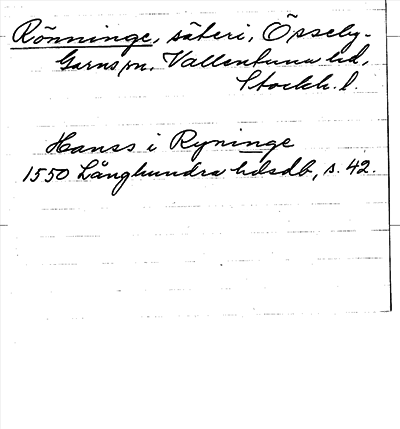 Rönninge, säteri, Össeby-
Garns sn. Vallentuna hd,
Stockh. l.
Hanss i Ryninge
1550 Långhundra hdsdb, s. 42.